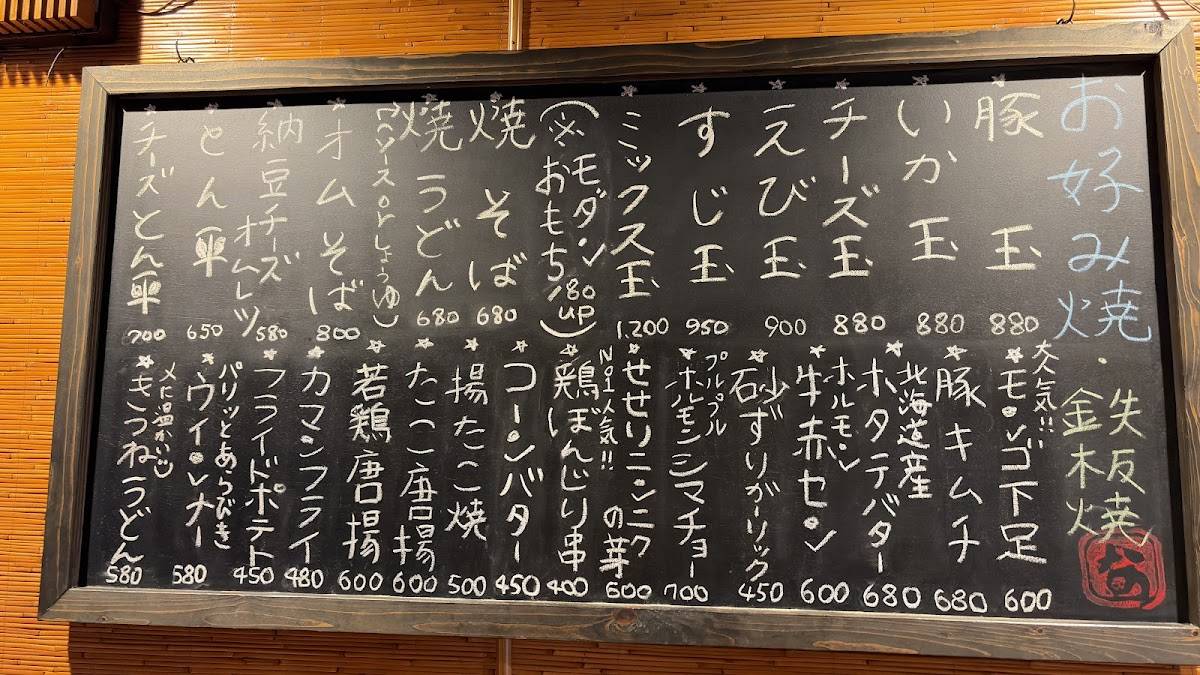 お好み焼・鉄板焼
豚玉 880
いか玉 880
チーズ玉 880
えび玉 900
すじ玉 950
ミックス玉 1,200
(※モダン
おもち 180up)
焼そば 680
焼うどん 680
(ソースorしょうゆ)
オムそば 800
納豆チーズ
オムレツ 580
とん平 650
チーズとん平 700
大人気!!
モンゴ下足 600
豚キムチ 680
北海道産
ホタテバター 680
ホルモン
牛赤セン 600
砂ずりガーリック 450
プルプル
ホルモンシマチョー 700
せせりニンニクの芽 600
No1人気!!
鶏ぼんじり串 400
コーンバター 450
揚たこ焼 500
たこ唐揚 600
若鶏唐揚 600
カマンフライ 480
フライドポテト 450
パリッとあらびき
ウインナー 580
〆に温かい
きつねうどん 580